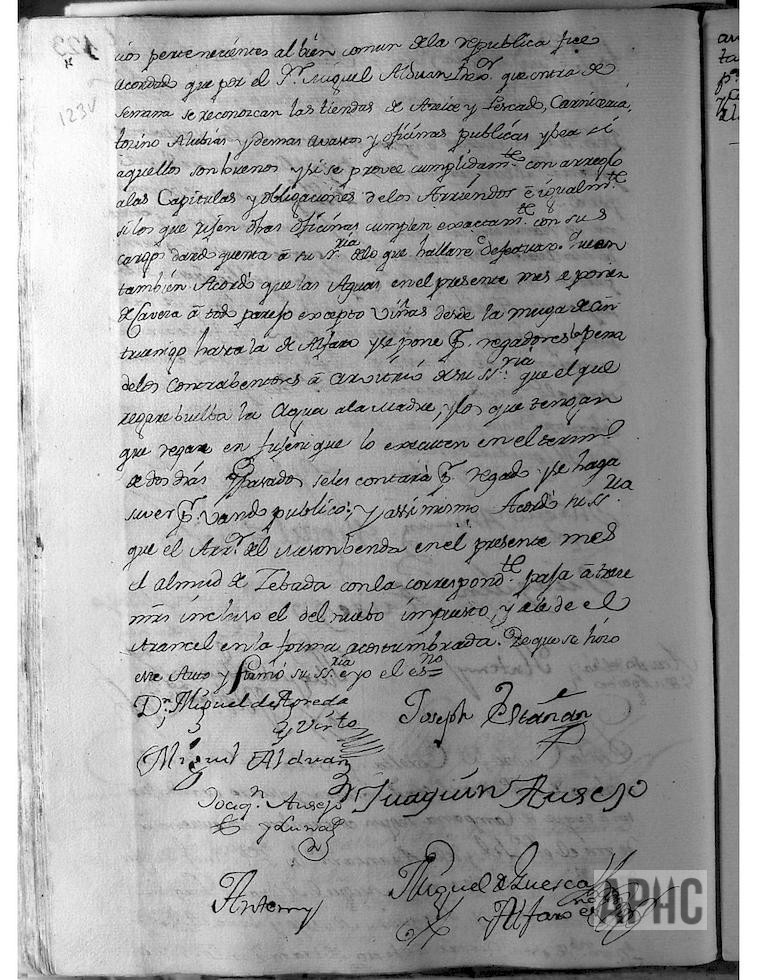 123
123v
cios pertenecientes al bien comun dela republica fue
acordado que por el Sr. Miguel Alduan Rexor. que entra de
semana se reconozcan las tiendas de Azeite y Pescado, Carniceria,
tozino Alubias y demas avastos y oficinas publicas y bea si
aquellos son buenos y si se provee cumplidamte. con arreglo
alas Capitulas y obligaciones de los Arriendos e igualmte.
si los que rijen otras oficinas cumplen exactamte. con sus
cargos dando quenta a su Sria. delo que hallare defectuoso.
tambien Acordó que las Aguas en el presente mes se ponen
de Cavera a todo parejo excepto viñas desde la muga de Cin
truenigo hasta la de Alfaro y se pone pr. regadores pena
delos Contrabentores a arvitrio de su Sria. que el que
regare buelba la Agua ala Madre, y los que tengan
que regar en que lo executen en el termno.
de dos dias pasados seles contará pr. regado y se haga
saver pr. vando publico; y assimismo Acordó su Sria.
que el Arrr. del Meson benda en el presente mes
el almud de Zebada con la correspondte. paja a trece
mrs incluso el del nuebo impuesto, y de el
Arancel en la forma acostumbrada. De que se hizo
este Auto y firmó su Sria. e yo el esno.
Dn. Miguel de Apreda
y Virto
Joseph Estañan
Miguel Alduan
Joaqn. Ausejo
y Luna
Juaquin Ausejo
Antemy
Miguel de Huesca
y Alfaro esno.
APHC